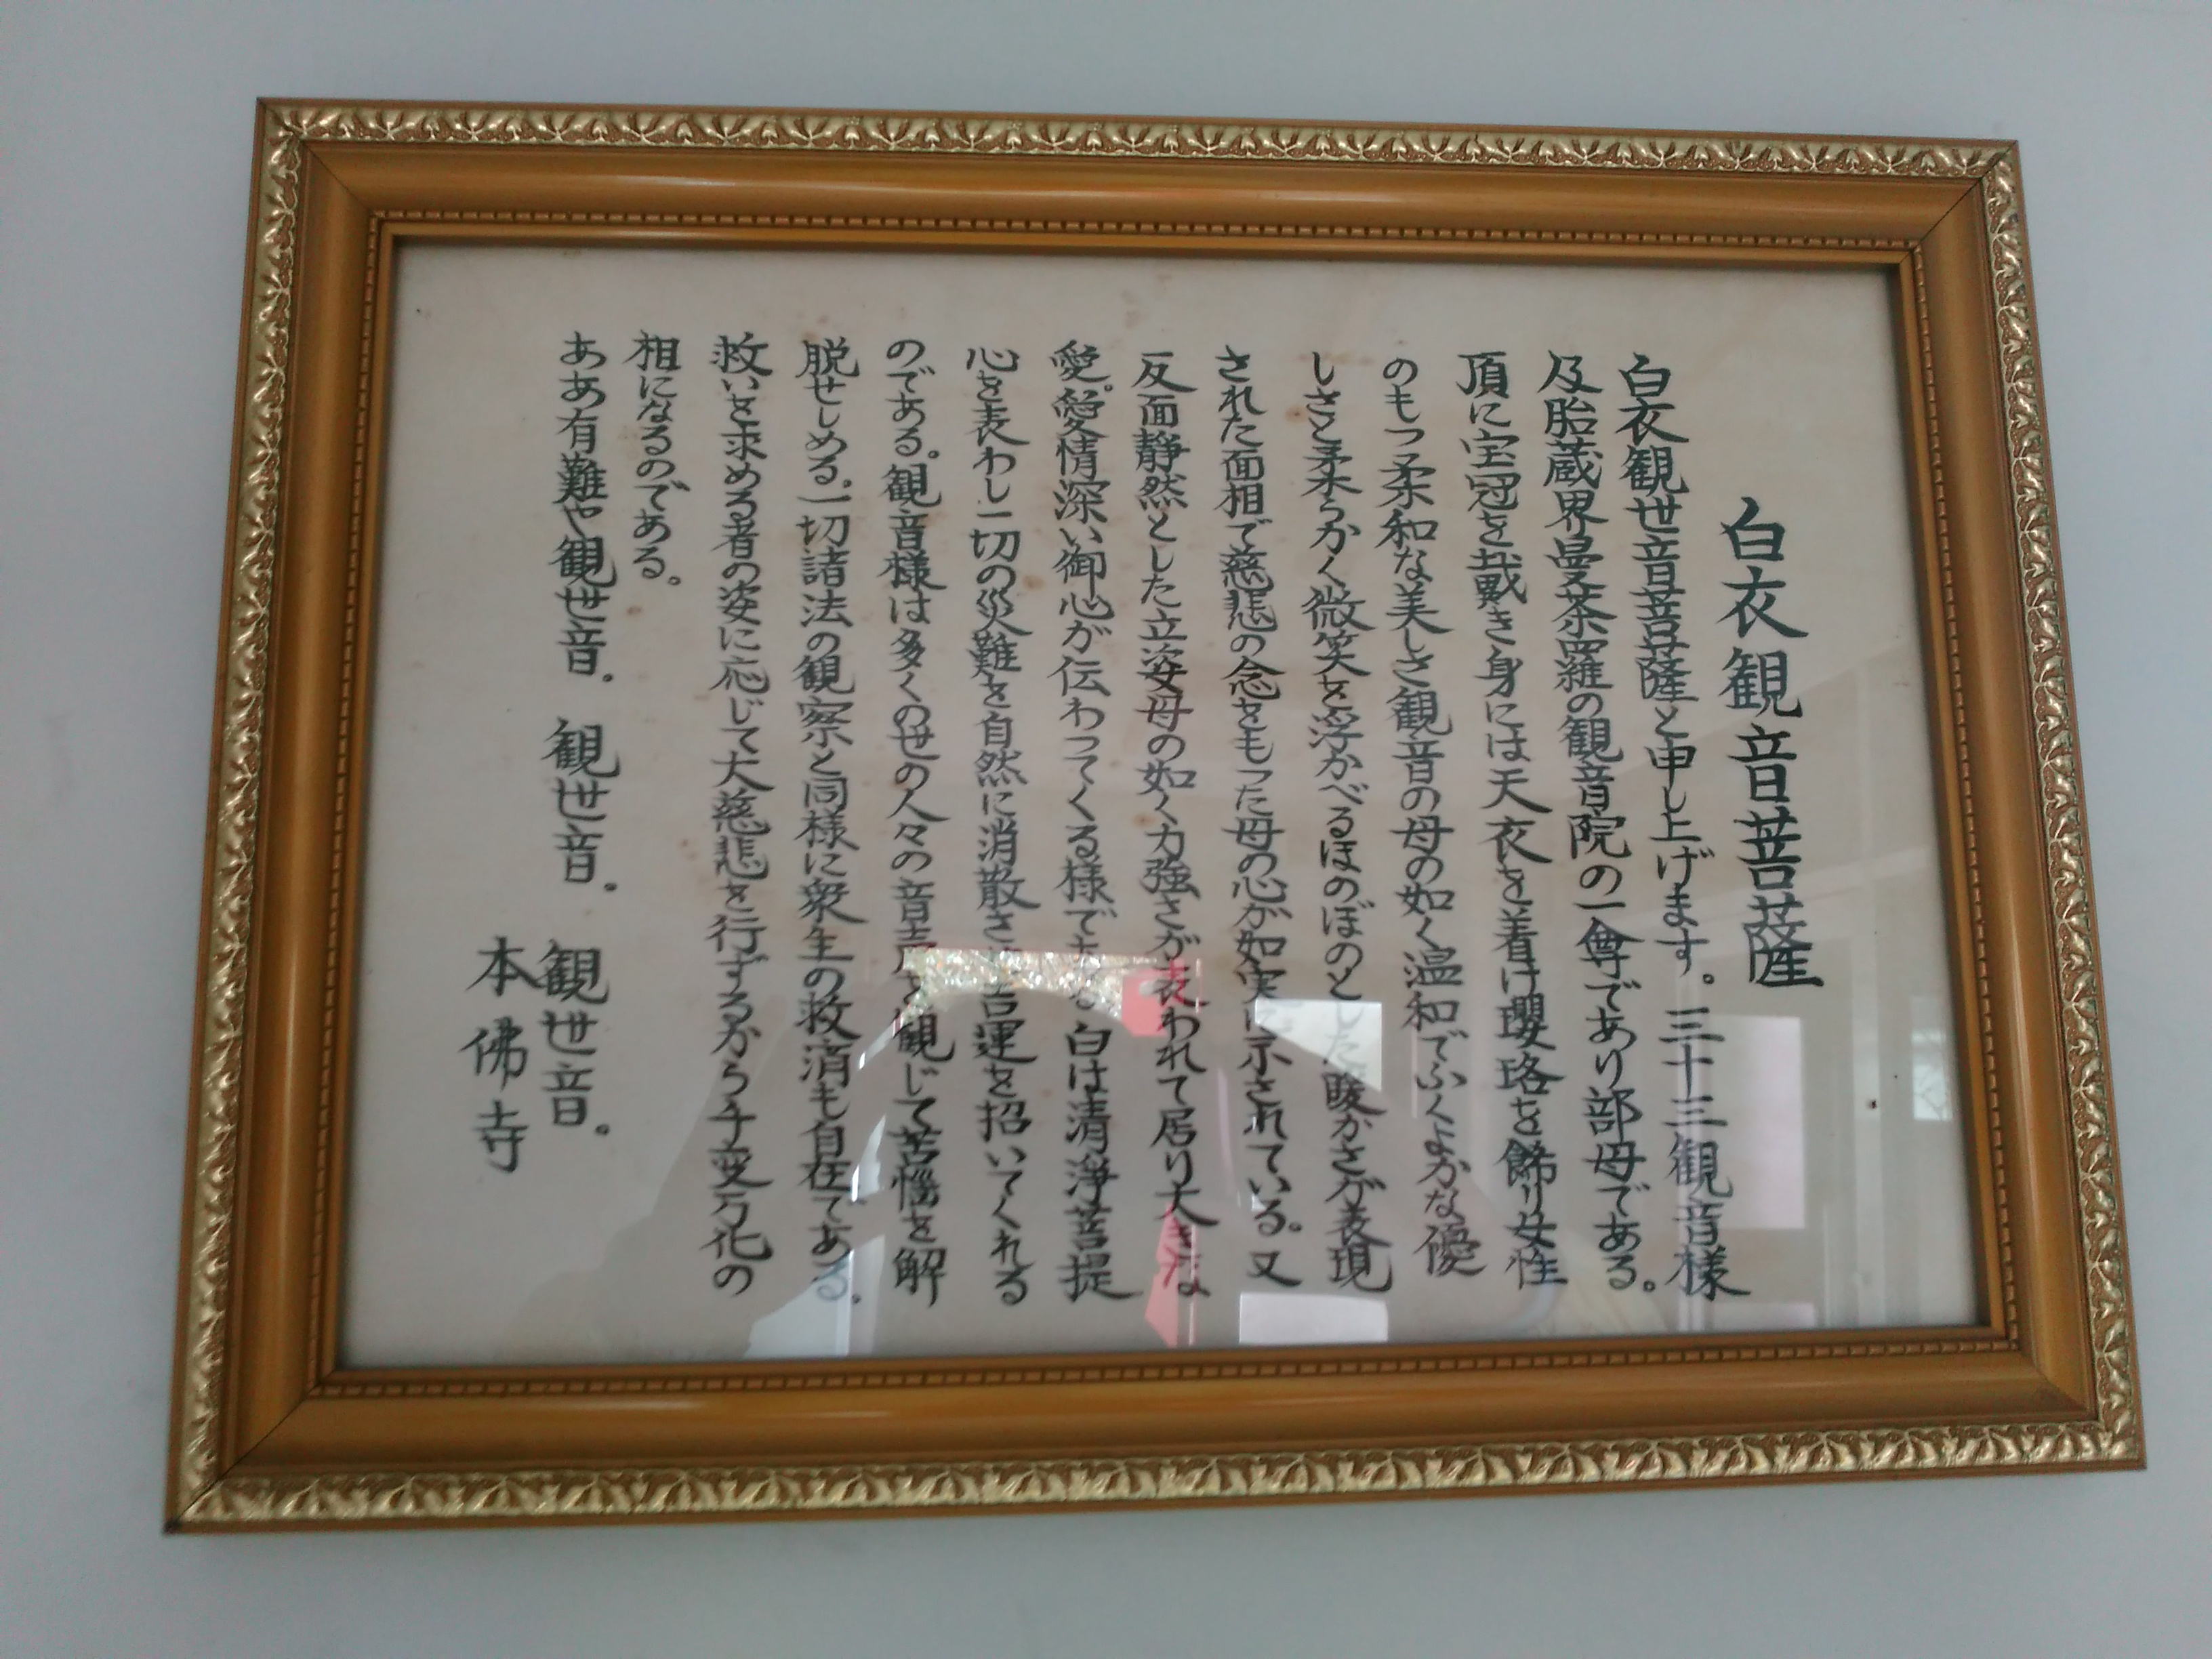 白衣観音菩薩
白衣観世音菩薩と申し上げます。三十三観音様
及胎蔵界曼荼羅の観音院の一尊であり部母である。
頂に宝冠を戴き身には天衣を着け瓔珞を飾り女性
のもつ柔和な美しさ観音の母の如く温和でふくよかな優
しさと柔らかく微笑を浮かべるほのぼのとした暖かさが表現
された面相で慈悲の念をもった母の心が如実に示されている。又
反面静然とした立姿母の如く力強さが表われて居り大きな
愛。愛情深い御心が伝わってくる様である 白は清浄菩提
心を表わし一切の災難を自然に消散さ 吉運を招いてくれる
のである。観音様は多くの世の人々の音声を観じて苦悩を解
脱せしめる。一切諸法の観察と同様に衆生の救済も自在である。
救いを求める者の姿に応じて大慈悲を行ずるから千変万化の
相になるのである。
ああ有難や観世音。 観世音。 観世音。
本佛寺